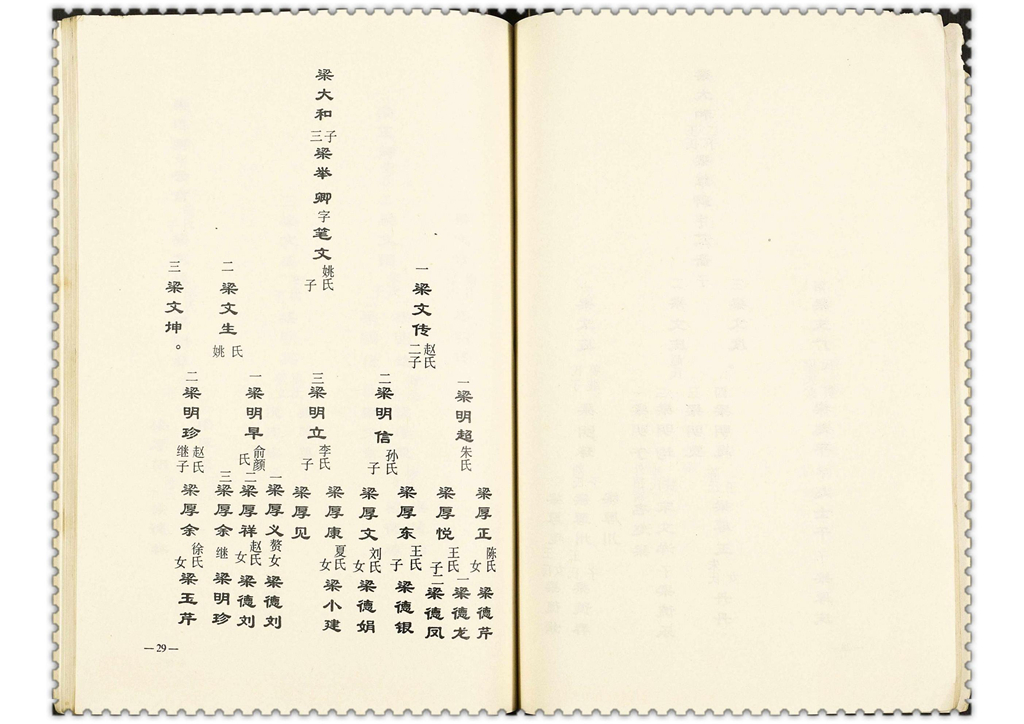 梁大和
三子
梁举卿字笔文
姚氏
子
一梁文传
赵氏
二子
二梁文生
姚氏
三梁文坤。
一梁明超
朱氏
二梁明信
孙氏
子
三梁明立
李氏
子
一梁明早
俞颜氏
二梁明珍
赵氏
继子
梁厚正
陈氏
女
梁德芹
梁厚悦
王氏
二子
一梁德龙
梁德凤
梁厚东
王氏
子
梁德银
梁厚文
刘氏
女
梁德娟
梁厚康
夏氏
女
梁小建
梁厚见
一梁厚义
赘女
梁德刘
二梁厚祥
赵氏
女
梁德刘
三梁厚余
继
梁明珍
梁厚余
徐氏
女
梁玉芹
—29—